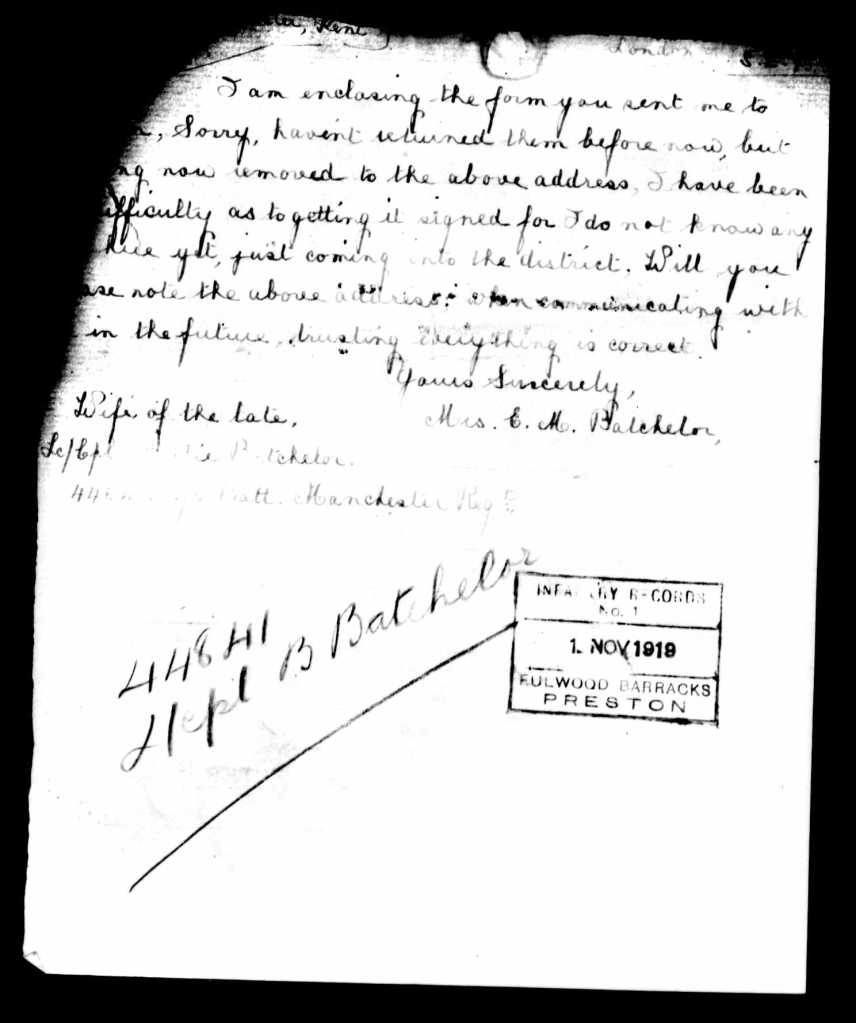 Kent
London
I am enclosing the form you sent me to
, Sorry, havent returned them before now, but
now removed to the above address, I have been
difficulty as to getting it signed for I do not know any
here yet, just coming into the district. Will you
note the above address: when communicating with
in the future, trusting everything is correct.
Yours Sincerely,
Wife of the late,
Mrs. E. M. Batchelor,
Lc/Cpl Batchelor.
Batt. Manchester Regt
44841
L/cpl B Batchelor
INFANTRY RECORDS
No. 1
1. NOV 1919
FULWOOD BARRACKS
PRESTON